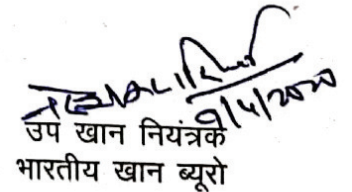 9/4/2020
उप खान नियंत्रक
भारतीय खान ब्यूरो